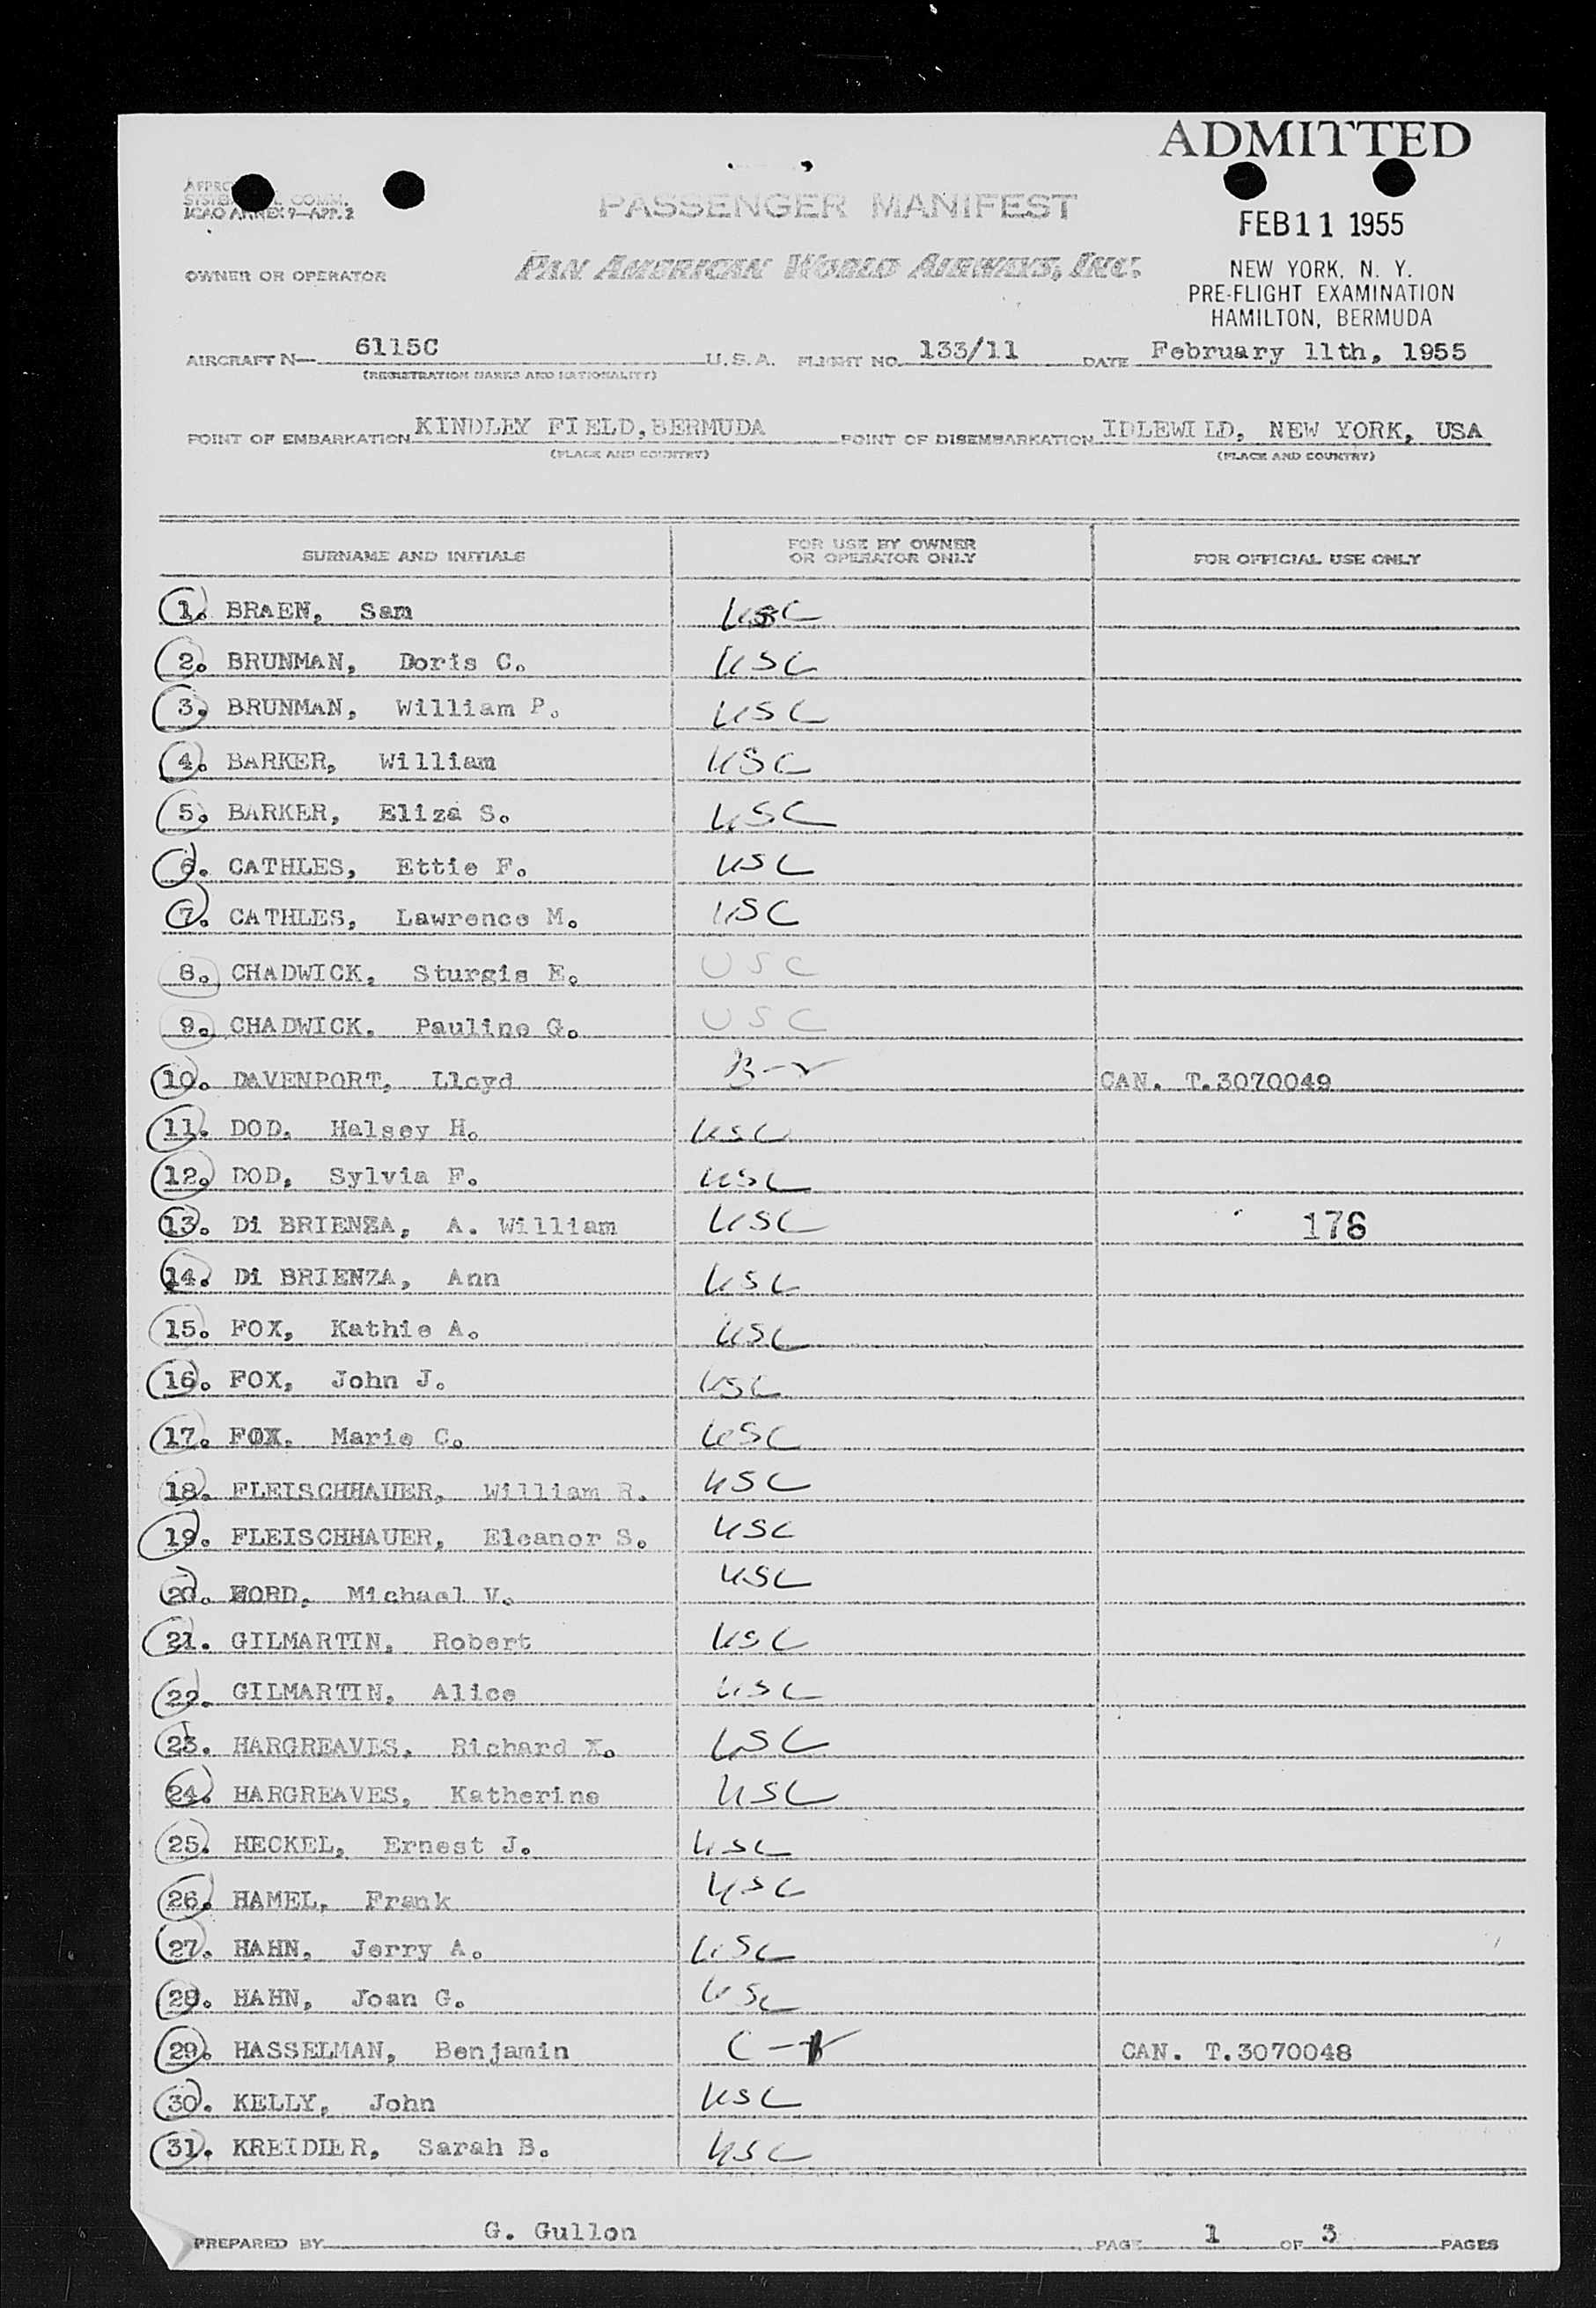 ADMITTED
FEB 11 1955
NEW YORK, N. Y.
PRE-FLIGHT EXAMINATION
HAMILTON, BERMUDA
COMM.
ICAO ANNEX 9—APP. 2
PASSENGER MANIFEST
OWNER OR OPERATOR PAN AMERICAN WORLD AIRWAYS, INC.
AIRCRAFT N— 6115C U.S.A. FLIGHT NO. 133/11 DATE February 11th, 1955
(REGISTRATION MARKS AND NATIONALITY)
POINT OF EMBARKATION KINDLEY FIELD, BERMUDA POINT OF DISEMBARKATION IDLEWILD, NEW YORK, USA
(PLACE AND COUNTRY) (PLACE AND COUNTRY)
SURNAME AND INITIALS FOR USE BY OWNER OR OPERATOR ONLY FOR OFFICIAL USE ONLY
1. BRAEN, Sam USC
2. BRUNMAN, Doris C. USC
3. BRUNMAN, William P. USC
4. BARKER, William USC
5. BARKER, Eliza S. USC
6. CATHLES, Ettie F. USC
7. CATHLES, Lawrence M. USC
8. CHADWICK, Sturgis E. USC
9. CHADWICK. Pauline G. USC
10. DAVENPORT, Lloyd B- CAN. T.3070049
11. DOD. Halsey H. USC
12. DOD, Sylvia F. USC
13. Di BRIENZA, A. William USC 176
14. Di BRIENZA, Ann USC
15. FOX, Kathie A. USC
16. FOX, John J. USC
17. FOX. Marie C. USC
18. FLEISCHHAUER, William R. USC
19. FLEISCHHAUER, Eleanor S. USC
20. FORD, Michael V. USC
21. GILMARTIN, Robert USC
22. GILMARTIN, Alice USC
23. HARGREAVES, Richard X. USC
24. HARGREAVES, Katherine USC
25. HECKEL, Ernest J. USC
26. HAMEL, Frank USC
27. HAHN, Jerry A. USC
28. HAHN, Joan G. USC
29. HASSELMAN, Benjamin C- CAN. T.3070048
30. KELLY, John USC
31. KREIDIER, Sarah B. USC
PREPARED BY G. Gullon PAGE 1 OF 3 PAGES